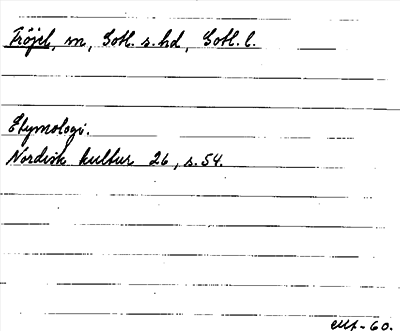 Fröjel, m, Gotl. s. hd, Gotl. l.
Etymologi.
Nordisk kultur 26, s. 54.